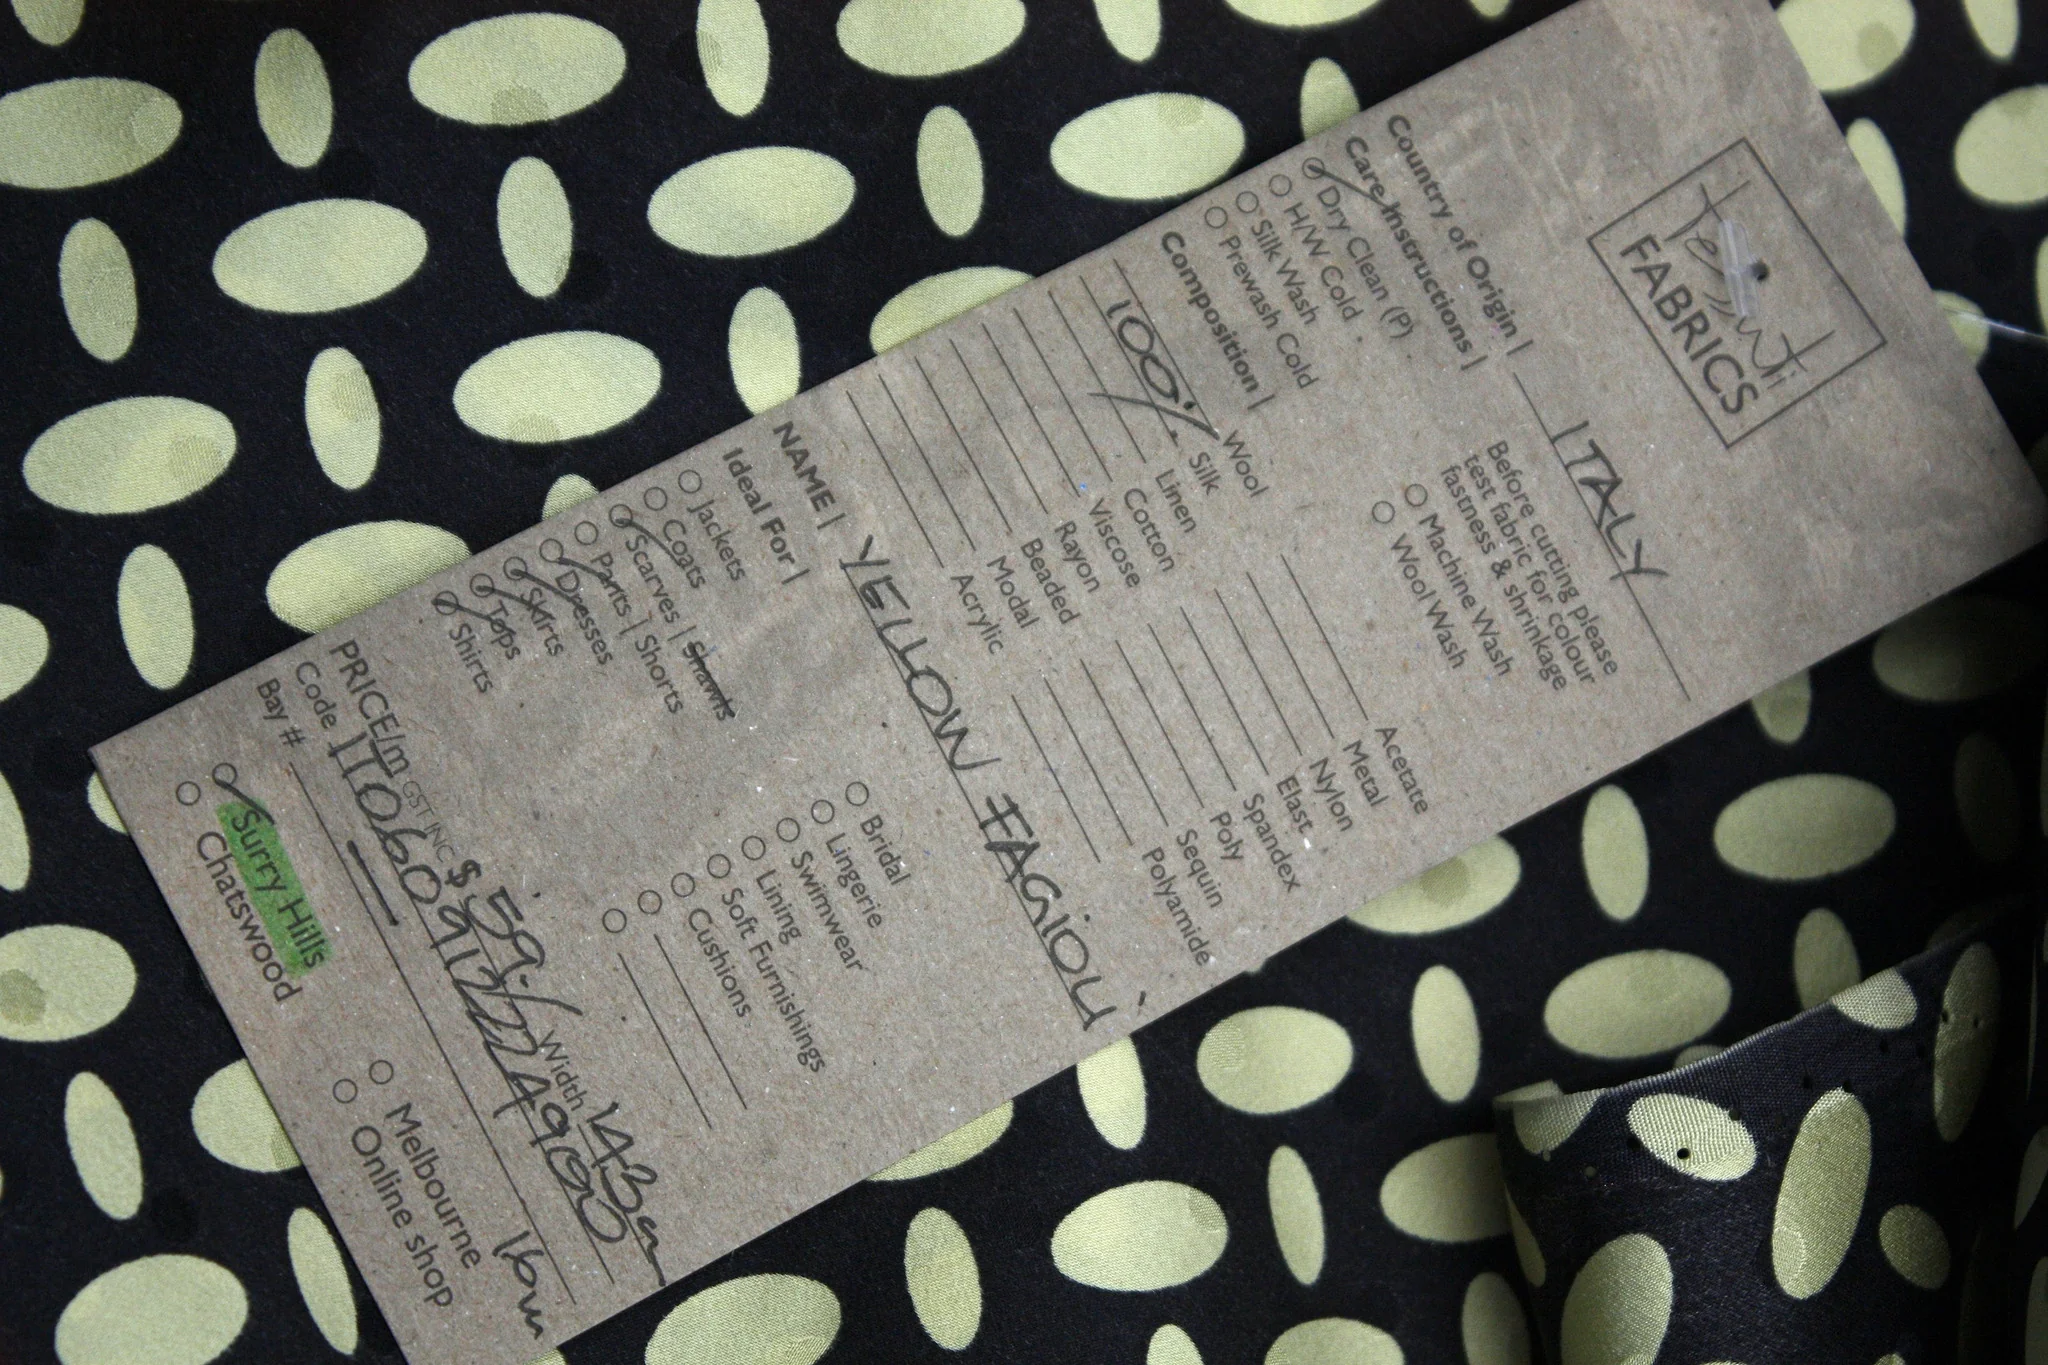 Tessuti
FABRICS
Country of Origin | ITALY
Care Instructions |
Dry Clean (P)
H/W Cold
Silk Wash
Prewash Cold
Before cutting please
test fabric for colour
fastness & shrinkage
Machine Wash
Wool Wash
Composition |
Wool
100% Silk
Linen
Cotton
Viscose
Rayon
Beaded
Modal
Acrylic
Acetate
Metal
Nylon
Elast
Spandex
Poly
Sequin
Polyamide
NAME | YELLOW FAGIOLI
Ideal For |
Jackets
Coats
Scarves | Shawls
Pants | Shorts
Dresses
Skirts
Tops
Shirts
Bridal
Lingerie
Swimwear
Lining
Soft Furnishings
Cushions
PRICE/m GST INC $ 59.- Width 143cm
Code
Bay #
16m
Surry Hills
Chatswood
Melbourne
Online shop